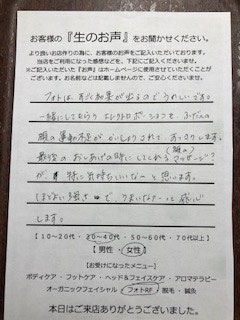 お客様の『生のお声』をお聞かせください。
より良いお店作りの為に、お客様のお声をご記入いただいております。
当店をご利用になった感想などを、下記にご記入くださいませ。
※ご記入いただいた『お声』はホームページに使用させていただくことが
ございます。お名前などは掲載しませんので、ご安心くださいませ。
フォトは すぐ結果が出るのでうれしいです。
一緒にしてもらう エレクトロポーションも、ふだんの
顔の運動不足が かいしょうされて、すっきりします。
最後の おしあげの時に してくれる (顔の)マッサージ?
が 特に気持ちいいな〜と 思います。
ほどよい強さ で うまいな〜と 感心
します。
【 10～20代 ・ 30～40代 ・ 50～60代 ・ 70代以上 】
【 男性 ・ 女性 】
【お受けになったメニュー】
ボディケア ・ フットケア ・ ヘッド＆フェイスケア ・ アロマテラピー
オーガニックフェイシャル ・ フォトRF ・ 脱毛 ・ 鍼灸
本日はご来店ありがとうございました。